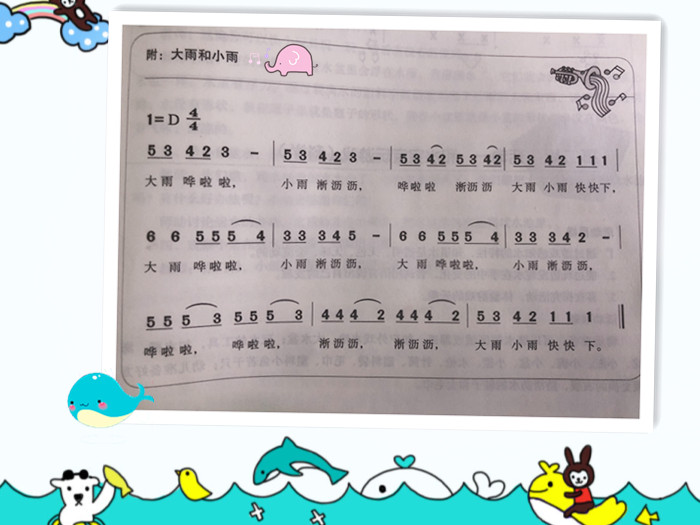 附：大雨和小雨
1=D 4/4
5 3 4 2 3 － | 5 3 4 2 3 － | 5 3 4 2 5 3 4 2 | 5 3 4 2 1 1 1 |
大雨 哗啦啦， 小雨 淅沥沥， 哗啦啦 淅沥沥 大雨 小雨 快快下，
6 6 5 5 5 5 4 | 3 3 3 4 5 － | 6 6 5 5 5 5 4 | 3 3 3 4 2 － |
大 雨 哗啦啦， 小雨 淅沥沥， 大 雨 哗啦啦， 小雨 淅沥沥，
5 5 5 5 3 5 5 5 5 3 | 4 4 4 4 2 4 4 4 4 2 | 5 3 4 2 1 1 1 ‖
哗啦啦， 哗啦啦， 淅沥沥， 淅沥沥， 大雨 小雨 快快 下。